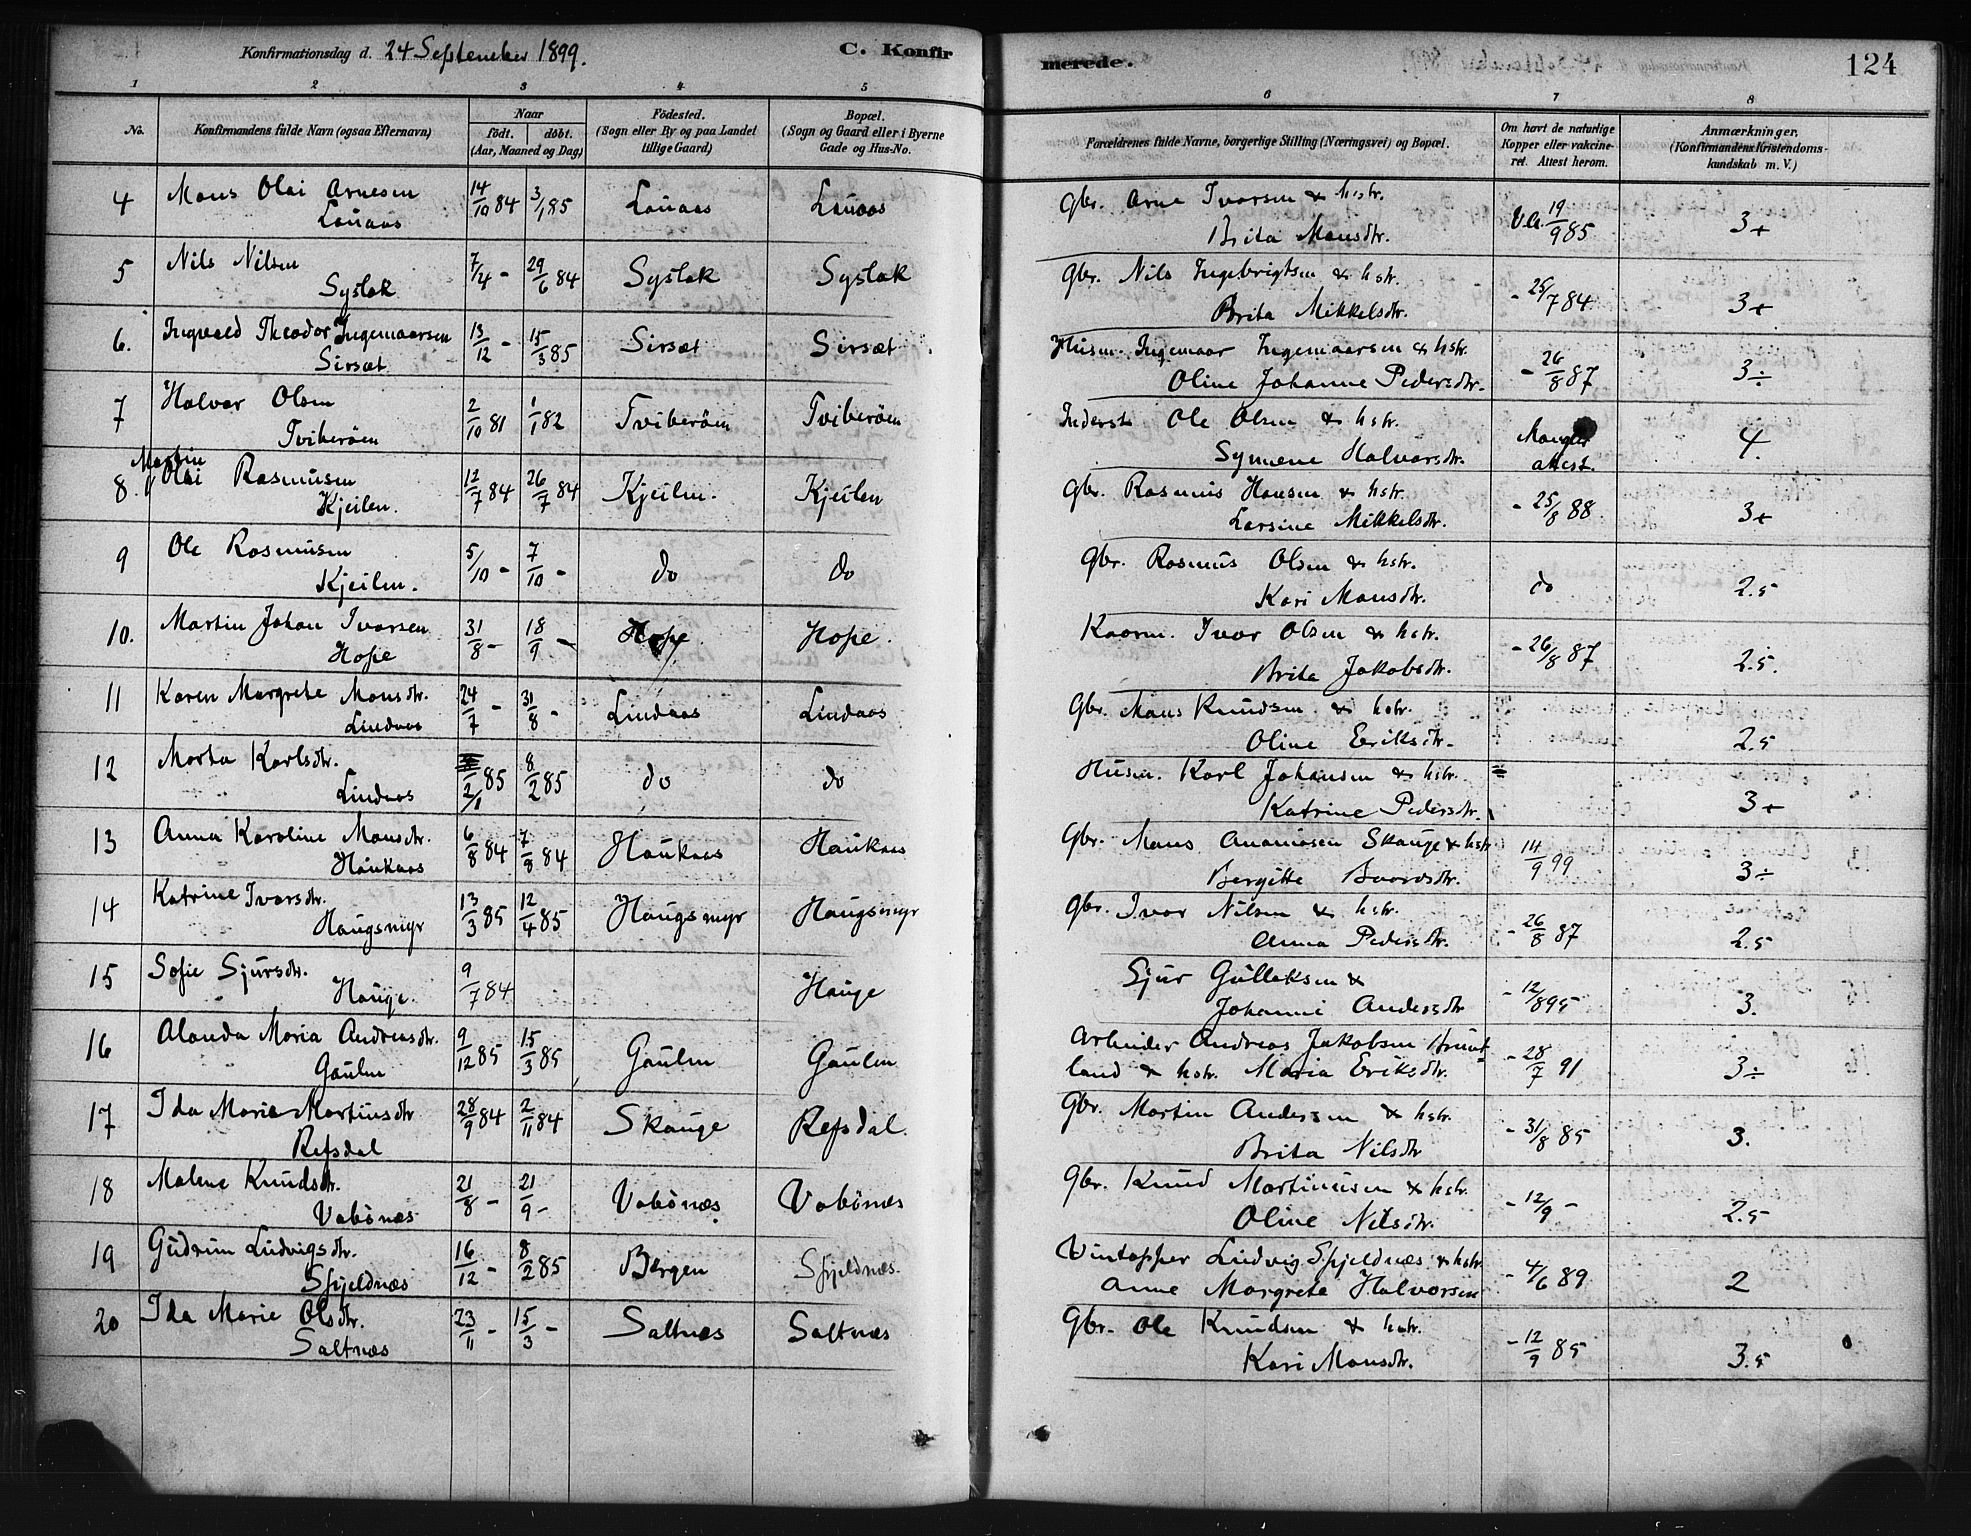 Konfirmationsdag d. 24 September 1899.
C. Konfir
merede.
124
1 2 3 4 5 6 7 8
No.
Konfirmandens fulde Navn (ogsaa Efternavn)
Naar
født. døbt.
(Aar, Maaned og Dag)
Fødested.
(Sogn eller By og paa Landet
tillige Gaard)
Bopæl.
(Sogn og Gaard eller i Byerne
Gade og Hus-No.
Forældrenes fulde Navne, borgerlige Stilling (Næringsvei) og Bopæl.
Om havt de naturlige
Kopper eller vakcine-
ret. Attest herom.
Anmærkninger.
(Konfirmandens Kristendoms-
kundskab m. V.)
4 Mons Olai Arnesen 14/10 84 3/1 85 Lauaas Lauaas Gbr. Arne Ivarsen & hstr. V.a. 19/9 85 3+
Lauaas Brita Monsdtr.
5 Nils Nilsen 7/4 - 29/6 84 Syslak Syslak Gbr. Nils Ingebrigtsen & hstr. - 25/7 84 3+
Syslak Brita Mikkelsdtr.
6. Ingvald Theodor Ingemaarsen 13/12 - 15/3 85 Sirsæt Sirsæt Husm. Ingemaar Ingemaarsen & hstr. - 26/8 87 3÷
Sirsæt Oline Johanne Pedersdtr.
7 Halvor Olsen 2/10 81 1/1 82 Tviberøen Tviberøen Inderst Ole Olsen & hstr. Mangler 4.
Tviberøen Synneve Halvorsdtr. attest.
Martin
8. Olai Rasmusen 12/7 84 26/7 84 Kjeilen. Kjeilen Gbr. Rasmus Hansen & hstr. - 25/8 88 3+
Kjeilen. Larsine Mikkelsdtr.
9 Ole Rasmusen 5/10 - 7/10 - do do Gbr. Rasmus Olsen & hstr. do 2.5
Kjeilen. Kari Monsdtr.
10. Martin Johan Ivarsen 31/8 - 18/9 - Hope Hope. Kaarm. Ivar Olsen & hstr. - 26/8 87 2.5.
Hope Brita Jakobsdtr.
11 Karen Margrete Monsdtr. 24/7 - 31/8 - Lindaas Lindaas Gbr. Mons Knudsen & hstr. 2.5
Lindaas Oline Eriksdtr.
12 Marta Karlsdtr. 2/1 85 8/2 85 do do Husm. Karl Johansen & hstr. = 3+
Lindaas Katrine Pedersdtr.
13 Anna Karoline Monsdtr. 6/8 84 7/9 84 Haukaas Haukaas Gbr. Mons Ananiasen Skauge & hstr 14/9 99 3÷
Haukaas Bergitte Baardsdtr.
14 Katrine Ivarsdtr. 13/3 85 12/4 85 Haugsmyr Haugsmyr Gbr. Ivar Nilsen & hstr. - 26/8 87 2.5
Haugsmyr Anna Pedersdtr.
15 Sofie Sjursdtr. 9/7 84 Hauge Sjur Gulleksen & - 12/8 95 3.
Hauge. Johanne Andersdtr
16 Alanda Maria Andreasdtr. 9/12 85 15/3 85 Gaulen Gaulen Arbeider Andreas Jakobsen Hunt - 28/7 91 3÷
Gaulen land & hstr. Maria Eriksdtr.
17 Ida Marie Martinsdtr 28/9 84 2/11 84 Skauge Refsdal. Gbr. Martin Andersen & hstr. - 31/8 85 3.
Refsdal Brita Nilsdtr
18 Malene Knudsdtr. 21/8 - 21/9 - Vabønæs Vabønæs Gbr. Knud Martinusen & hstr. - 12/9 - 2.5
Vabønæs Oline Nilsdtr.
19 Gudrun Ludvigsdtr. 16/12 - 8/2 85 Bergen Spjeldnæs. Vintapper Ludvig Spjeldnæs & hstr - 4/6 89 2
Spjeldnæs Anne Margrete Halvorsen
20 Ida Marie Olsdtr. 23/11 - 15/3 - Saltnæs Saltnæs Gbr. Ole Knudsen & hstr. - 12/9 85 3.5
Saltnæs Kari Monsdtr.